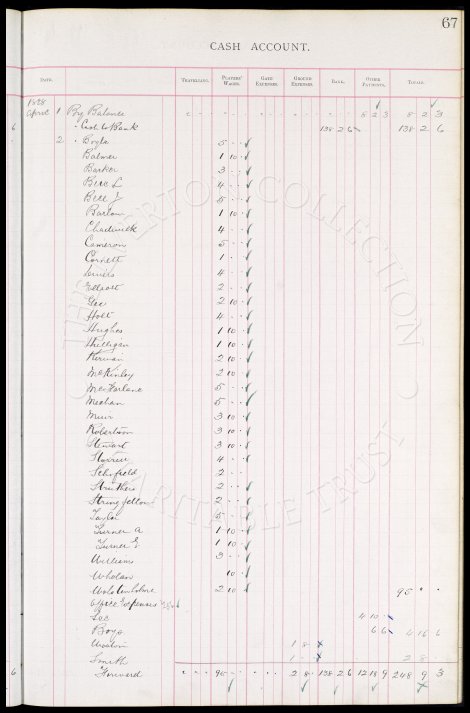 67
CASH ACCOUNT.
DATE. TRAVELLING. PLAYERS' WAGES. GATE EXPENSES. GROUND EXPENSES. BANK. OTHER PAYMENTS. TOTALS.
1898
April 1 By Balance 8 2 3 8 2 3
6 Cash to Bank 138 2 6 138 2 6
2 Boyle 5
Balmer 1 10
Barker 3
Bell L 4
Bell J 5
Barlow 1 10
Chadwick 4
Cameron 5
Cornett 1
4
2
Gee 2 10
Holt 4
Hughes 1 10
Hulligan 1 10
Kirwan 2 10
McKinley 2 10
McFarlane 5
Meehan 5
Muir 3 10
Robertson 3 10
Stewart 3 10
Storrier 4
Schofield 2
Struthers 2
Stringfellow 2
Taylor 5
Turner A 1 10
Turner G 1 10
Williams 3
Whelan 10
Wolstenholme 2 10 95
Office Expenses
Lee 4 10
Boys 6 6 4 16 6
1 8
Smith 1 2 8
6 Forward 95 2 8 138 2 6 12 18 9 248 9 3
THE EVERTON COLLECTION
CHARITABLE TRUST